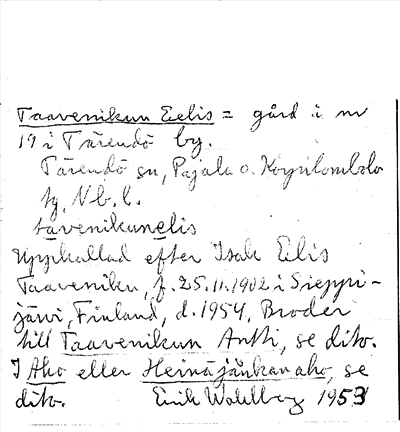 Taavenikun Eelis = gård i nr
19 i Tärendö by.
Tärendö sn, Pajala o. Korpilombolo
tg, Nb. l.
tavenikunelis
Uppkallad efter Isak Eilis
Taaveniku, f. 25.11.1902 i Sieppi-
järvi, Finland, d. 1954, Broder
till Taavenikun Antti, se dito.
I Aho eller Heinäjänkan aho, se
dito. Erik Wahlberg 1953